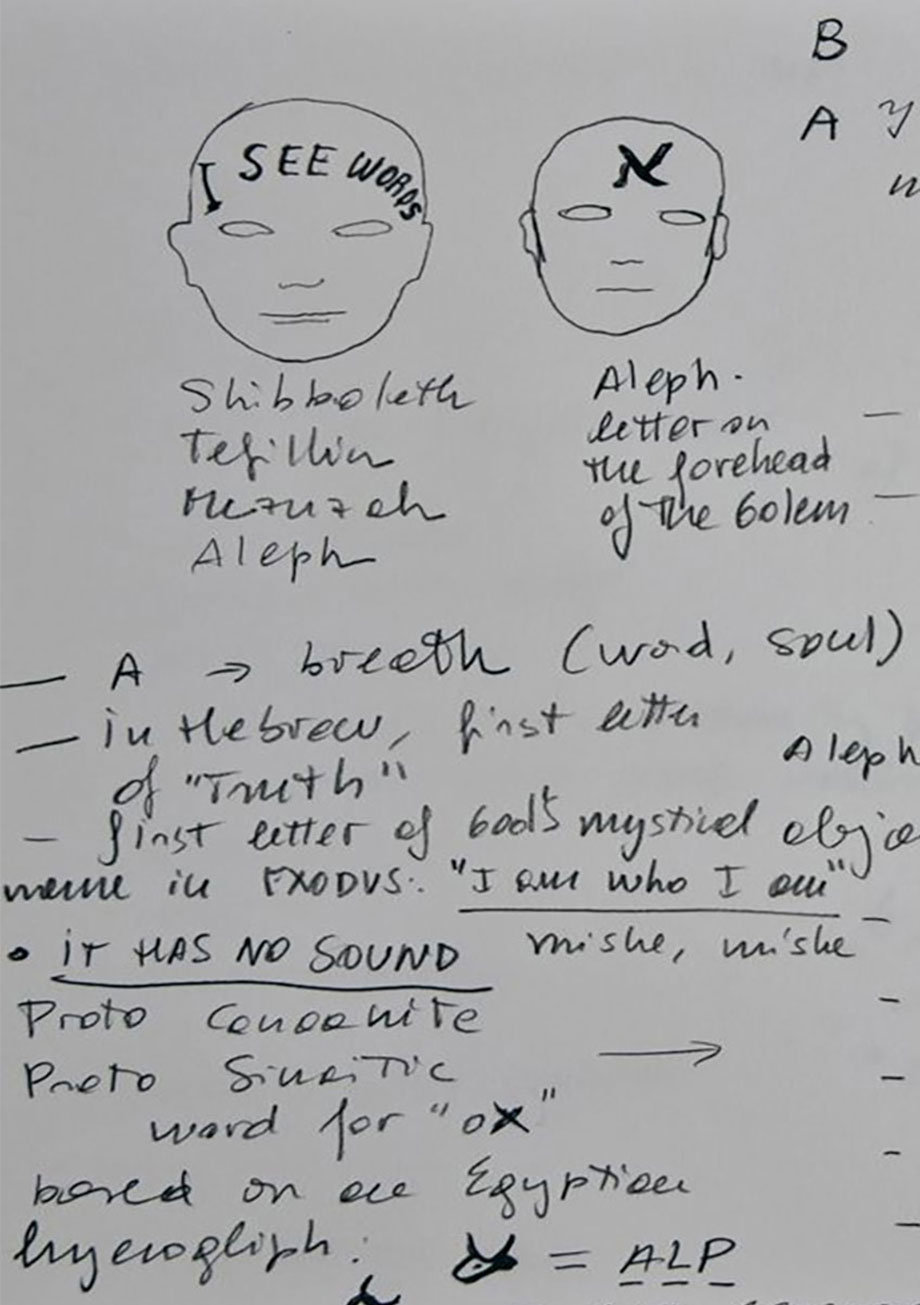 B
A y
I SEE WORDS
א
Shibboleth
Tefillin
Mezuzah
Aleph
Aleph.
letter on
the forehead
of the Golem
— A → breath (word, soul)
— in Hebrew, first letter
of "Truth"
Aleph
— first letter of God's mystical
name in EXODUS: "I am who I am"
• IT HAS NO SOUND
mishe, mishe
Proto Canaanite
Proto Sinaitic →
word for "ox"
based on an Egyptian
hyerogliph:
= ALP